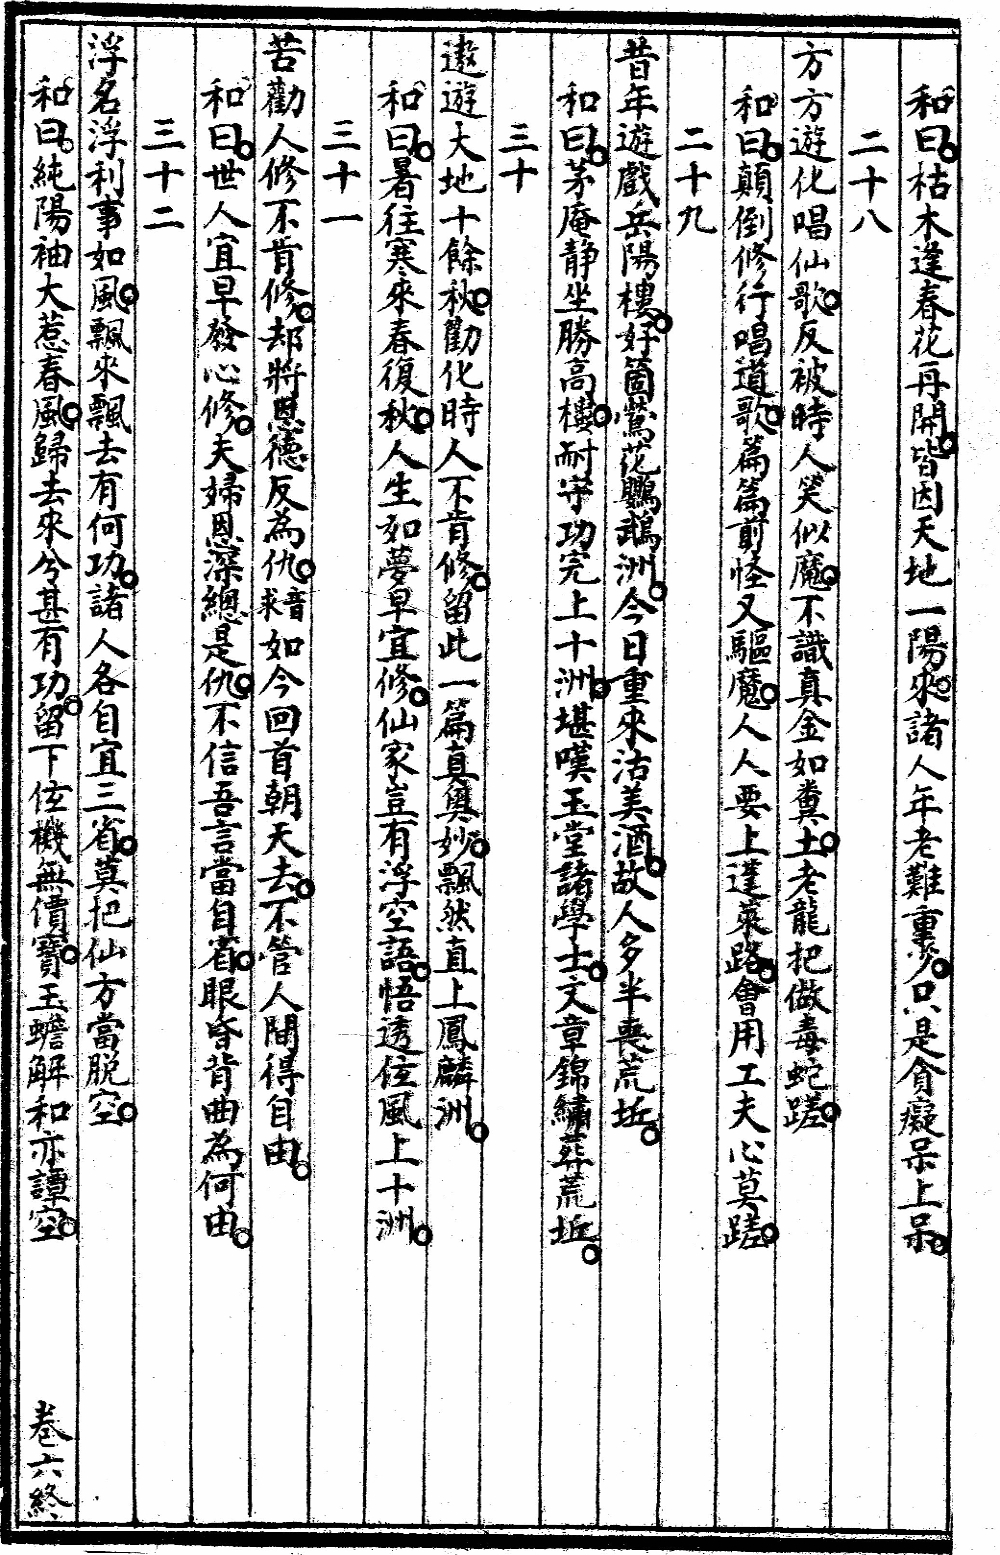 和曰枯木逢春花再開皆因天地一陽來諸人年老難重少只是貪癡呆上呆
二十八
方方遊化唱仙歌反被時人笑似魔不識真金如糞土老龍把做毒蛇蹉
和曰顛倒修行唱道歌篇篇前怪又驅魔人人要上蓬萊路會用工夫心莫蹉
二十九
昔年遊戲岳陽樓好箇鶯花鸚鵡洲今日重來沽美酒故人多半喪荒坵
和曰茅庵静坐勝高樓耐守功完上十洲堪嘆玉堂諸學士文章錦繡葬荒坵
三十
遨遊天地十餘秋勸化時人不肯修留此一篇真奧妙飄然直上鳳麟洲
和曰暑往寒來春復秋人生如夢早宜修仙家豈有浮空語悟透位風上十洲
三十一
苦勸人修不肯修却將恩德反為仇音求如今回首朝天去不管人間得自由
和曰世人宜早發心修夫婦恩深總是仇不信吾言當自省眼昏背曲為何由
三十二
浮名浮利事如風飄來飄去有何功諸人各自宜三省莫把仙方當脱空
和曰純陽袖大惹春風歸去來兮甚有功留下位機無價寶玉蟾解和亦譚空
卷六終